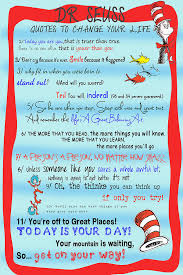 DR. SEUSS
QUOTES TO CHANGE YOUR LIFE
1/ Today you are you, that is truer than true.
There is no one alive that is youer than you.
2/ Don't cry because it's over. Smile because it happened!
3/ why fit in when you were born to
stand out!
4/ All will they
Toil too will inderal
5/ So be sure when you step, Step with care and great tact.
And remember that life's A Great Balancing Act.
6/ THE MORE THAT YOU READ, the more things you will know.
THE MORE THAT YOU LEARN,
the more places you'll go
A PERSON'S A PERSON, NO MATTER HOW SMALL
8/ Unless someone like you cares a whole awful lot,
nothing is going to get better. It's not.
9/ Oh, the thinks you can think
if only you try!
11/ You're off to Great Places!
TODAY IS YOUR DAY!
Your mountain is waiting,
So... get on your way!